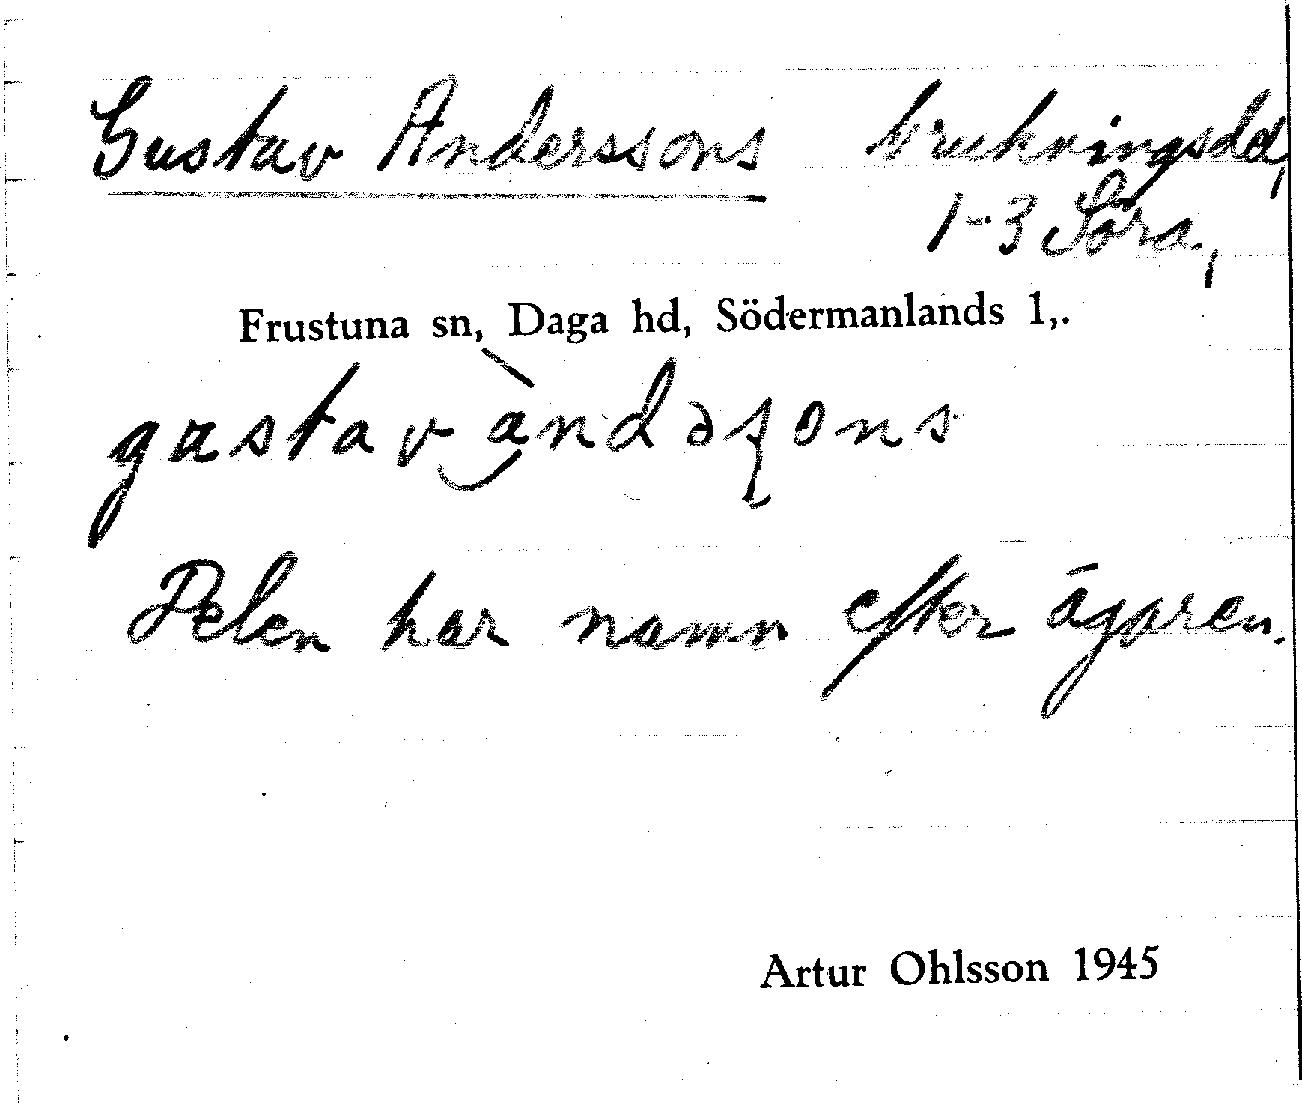 Gustav Anderssons brukningsdel,
1-3 Söra,
Frustuna sn, Daga hd, Södermanlands l,.
gustav‿àndəʂons
Delen har namn efter ägaren.
Artur Ohlsson 1945